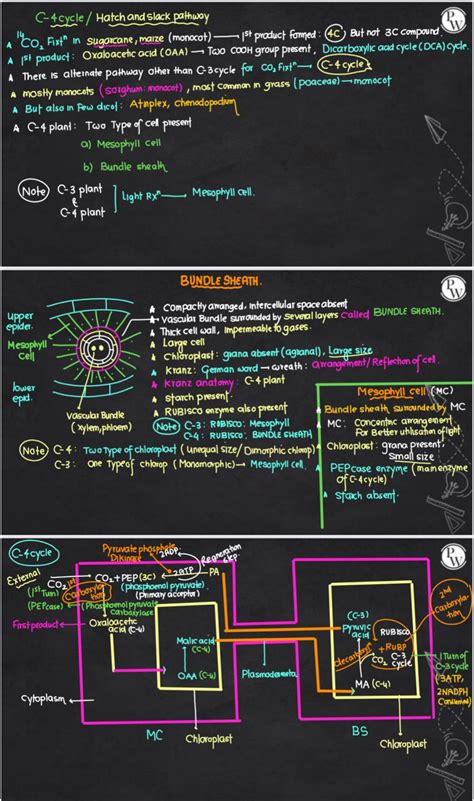 C-4cycle / Hatch and slack pathway
PW
14CO2 Fixtn in sugarcane, maize (monocot) → 1st product formed: 4C) But not 3C compound
1st product: Oxaloacetic acid (OAA) → Two COOH group present, Dicarboxylic acid cycle (DCA) cycle.
There is alternate pathway other than C-3cycle for CO2 Fixtn → C-4 cycle
mostly monocots (sorghum: monocot), most common in grass (poaceae) → monocot
But also in few dicot: Atriplex, chenodopodium
C-4 plant: Two Type of cell present
a) Mesophyll Cell
b) Bundle sheath
Note C-3 plant & C-4 plant Light Rxn → Mesophyll cell.
BUNDLE SHEATH.
PW
Compactly arranged, intercellular space absent
Vascular Bundle surrounded by several layers called BUNDLE SHEATH.
Thick cell wall, Impermeable to gases.
Large cell
Chloroplast: grana absent (agranal), Large size
Kranz: German word → wreath: Arrangement/Reflection of cell.
Kranz anatomy: C-4 plant
Starch present
RUBISCO enzyme also present
upper epider.
Mesophyll Cell
lower epid.
Vascular Bundle
(xylem, phloem)
Note C-3: RUBISCO: Mesophyll
C-4: RUBISCO: BUNDLE SHEATH
Note C-4: Two Type of chloroplast (unequal size/Dimorphic chlorop)
C-3: One Type of chlorop (Monomorphic) → Mesophyll cell.
Mesophyll cell (MC)
Bundle sheath surrounded by MC
MC: Concentric arrangement
For Better utilisation of light
Chloroplast: grana present
Small size
PEPcase enzyme (main enzyme of C-4 cycle)
Starch absent.
C-4cycle
PW
Pyruvate phosphate Dikinase
2ADP
2ATP
Regeneration step
External CO2
CO2+PEP(3C)
PA
(1st Turn)
1st Carboxylation
(phosphoenol pyruvate)
(primary acceptor)
(PEPcase)
(Phosphoenol pyruvate Carboxylase)
First product
Oxaloacetic acid (C-4)
Malic acid (C-4)
OAA (C-4)
Cytoplasm
MC
Chloroplast
Plasmodesmata
(C-3)
Pyruvic acid
decarboxy
RUBISCO
+RUBP
CO2
C-3 cycle
MA (C-4)
2nd Carboxylation
1 Turn of C-3 cycle
(3ATP, 2NADPH Consumed)
BS
Chloroplast